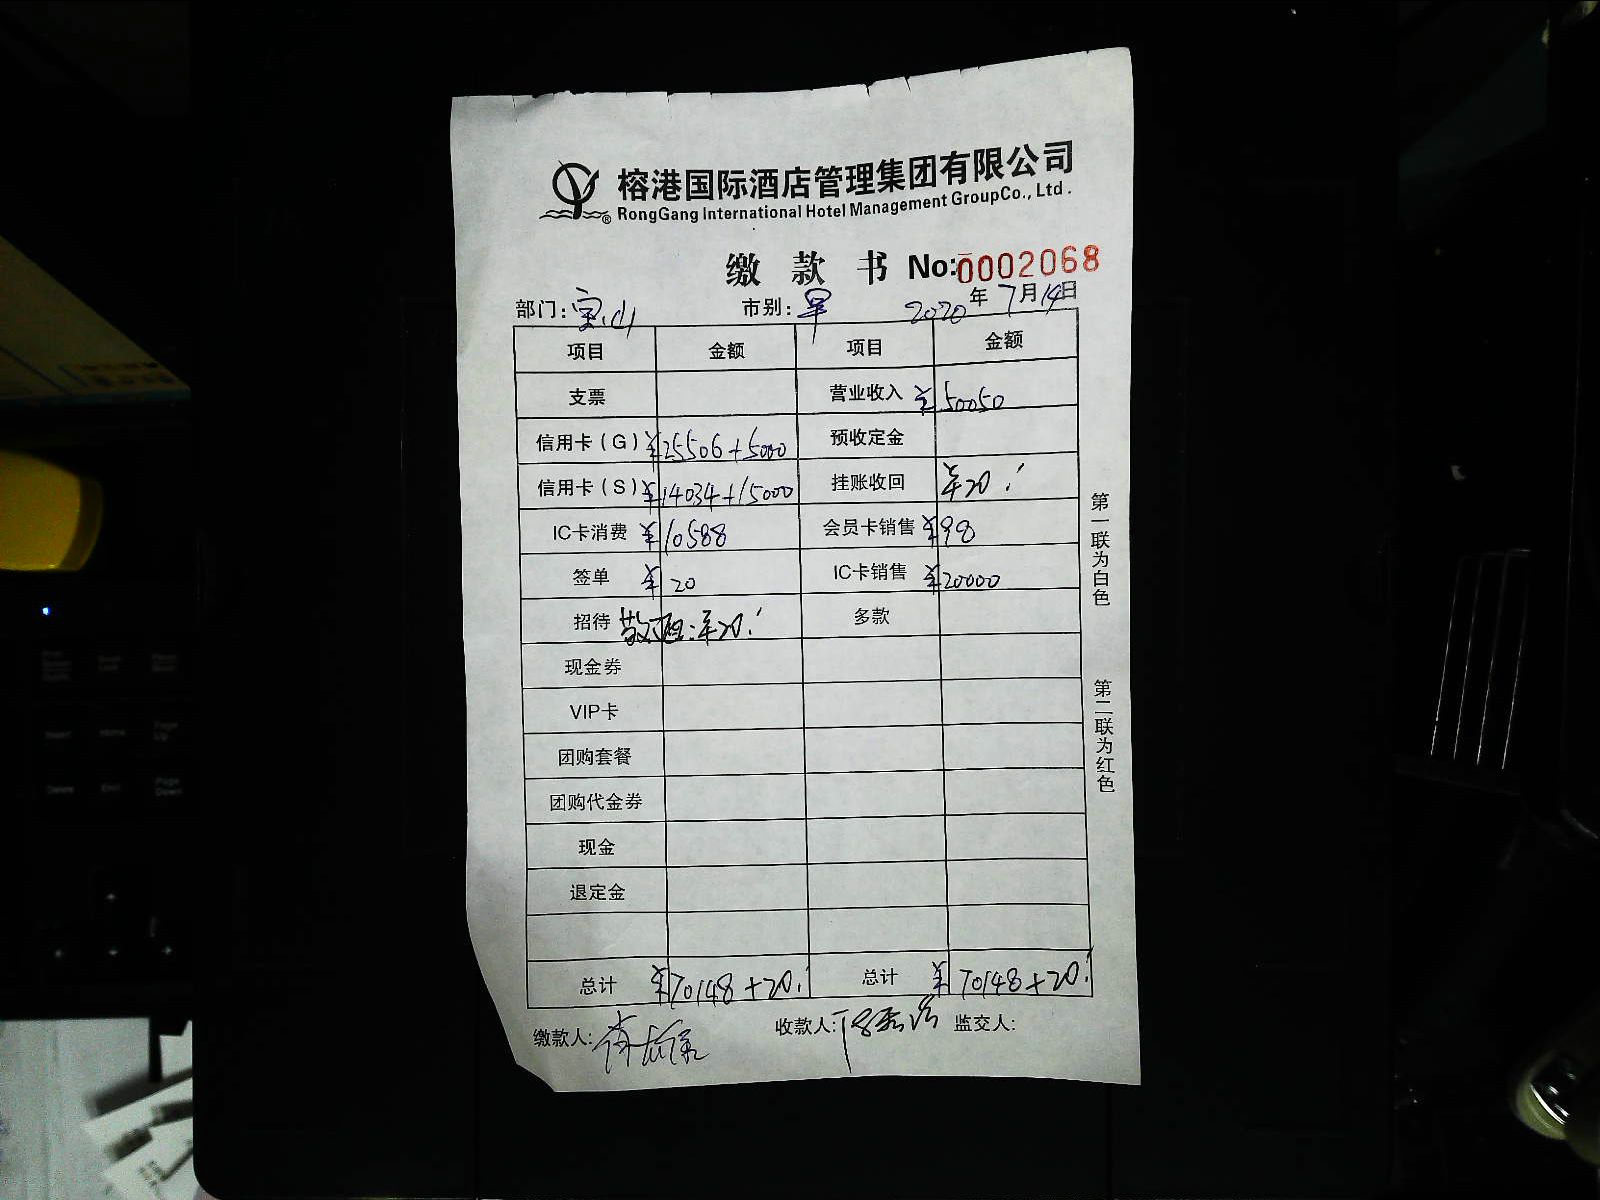 榕港国际酒店管理集团有限公司
RongGang International Hotel Management GroupCo., Ltd.
缴 款 书 No:0002068
部门:宝山 市别:早 2020年7月14日
项目 金额 项目 金额
支票 营业收入 ¥50050
信用卡(G) ¥25506+5000 预收定金
信用卡(S) ¥14034+15000 挂账收回 ¥20.
IC卡消费 ¥10588 会员卡销售 ¥98
签单 ¥20 IC卡销售 ¥20000
招待 ¥20. 多款
现金券
VIP卡
团购套餐
团购代金券
现金
退定金
总计 ¥70148+20. 总计 ¥70148+20.
缴款人: 收款人: 监交人:
第一联为白色
第二联为红色